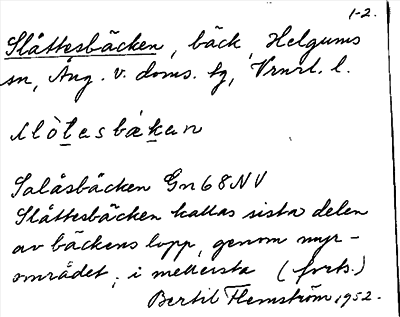 1-2.
Slåttesbäcken, bäck, Helgums
sn, Ång. v. doms. tg, Vrnrl. l.
Salåsbäcken Gn 68 NV
Slåttesbäcken kallas sista delen
av bäckens lopp, genom myr-
området, i mellersta (forts.)
Bertil Flemström, 1952.